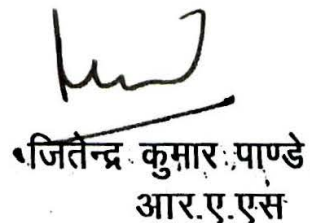 जितेन्द्र कुमार पाण्डे
आर.ए.एस